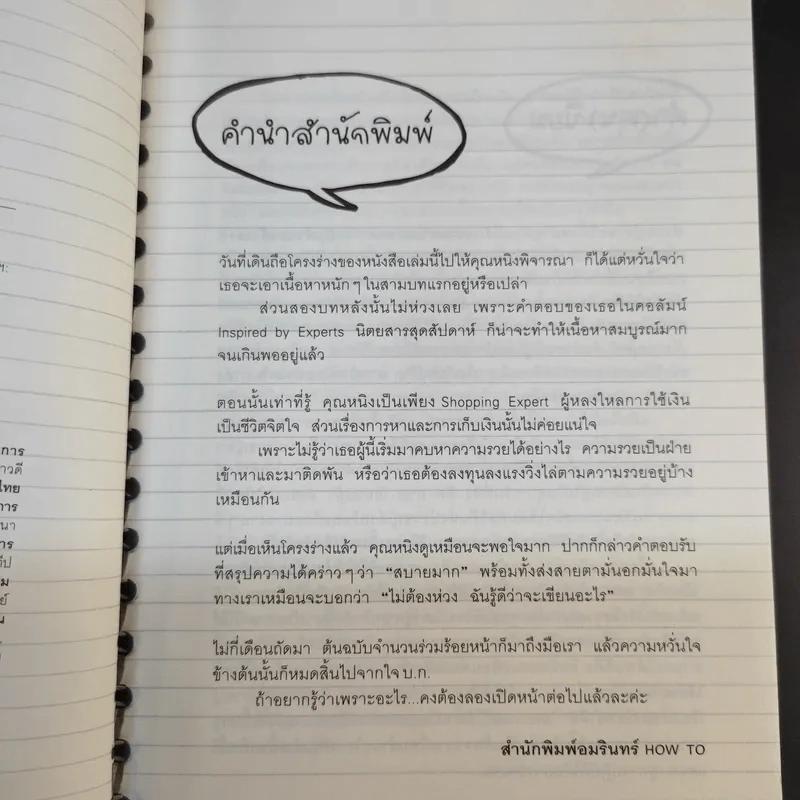 คำนำสำนักพิมพ์
วันที่เดินถือโครงร่างของหนังสือเล่มนี้ไปให้คุณหนิงพิจารณา ก็ได้แต่หวั่นใจว่า
เธอจะเอาเนื้อหาหนักๆ ในสามบทแรกอยู่หรือเปล่า
ส่วนสองบทหลังนั้นไม่ห่วงเลย เพราะคำตอบของเธอในคอลัมน์
Inspired by Experts นิตยสารสุดสัปดาห์ ก็น่าจะทำให้เนื้อหาสมบูรณ์มาก
จนเกินพออยู่แล้ว
ตอนนั้นเท่าที่รู้ คุณหนิงเป็นเพียง Shopping Expert ผู้หลงใหลการใช้เงิน
เป็นชีวิตจิตใจ ส่วนเรื่องการหาและการเก็บเงินนั้นไม่ค่อยแน่ใจ
เพราะไม่รู้ว่าเธอผู้นี้เริ่มมาคบหาความรวยได้อย่างไร ความรวยเป็นฝ่าย
เข้าหาและมาติดพัน หรือว่าเธอต้องลงทุนลงแรงวิ่งไล่ตามความรวยอยู่บ้าง
เหมือนกัน
แต่เมื่อเห็นโครงร่างแล้ว คุณหนิงดูเหมือนจะพอใจมาก ปากก็กล่าวคำตอบรับ
ที่สรุปความได้คร่าวๆ ว่า “สบายมาก” พร้อมทั้งส่งสายตามั่นอกมั่นใจมา
ทางเราเหมือนจะบอกว่า “ไม่ต้องห่วง ฉันรู้ดีว่าจะเขียนอะไร”
ไม่กี่เดือนถัดมา ต้นฉบับจำนวนร่วมร้อยหน้าก็มาถึงมือเรา แล้วความหวั่นใจ
ข้างต้นนั้นก็หมดสิ้นไปจากใจ บ.ก.
ถ้าอยากรู้ว่าเพราะอะไร...คงต้องลองเปิดหน้าต่อไปแล้วละค่ะ
สำนักพิมพ์อมรินทร์ HOW TO